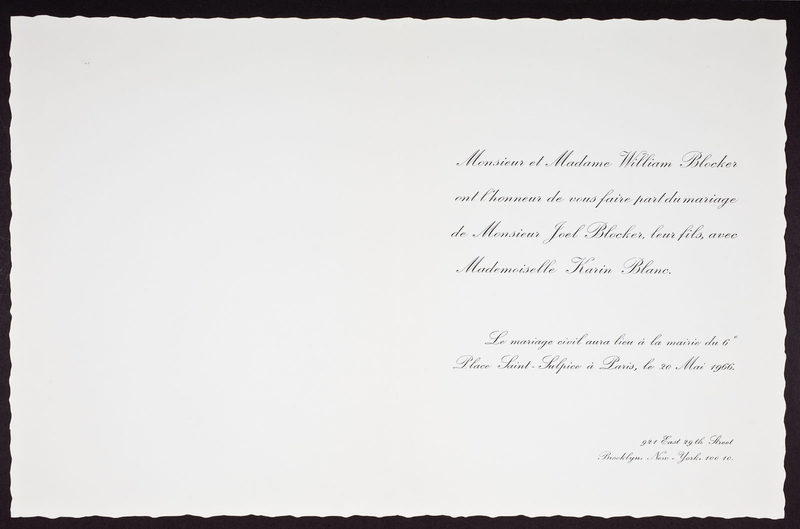 Monsieur et Madame William Blocker
ont l'honneur de vous faire part du mariage
de Monsieur Joel Blocker, leur fils, avec
Mademoiselle Karin Blanc.
Le mariage civil aura lieu à la mairie du 6e
Place Saint-Sulpice à Paris, le 20 Mai 1966.
921 East 29th Street
Brooklyn. New-York. 100 10.